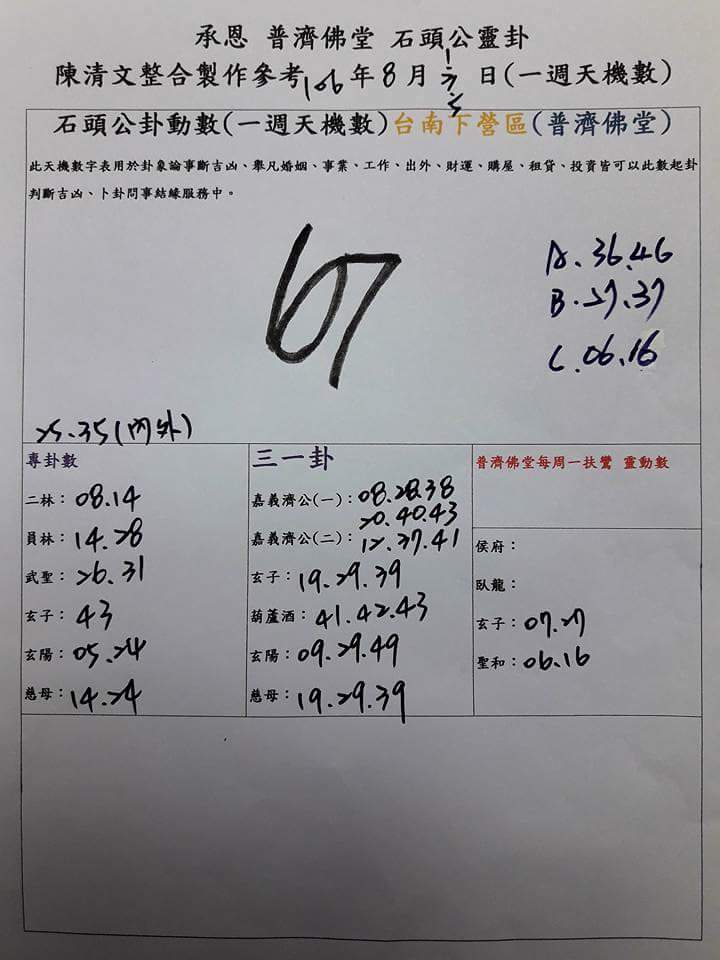 承恩 普濟佛堂 石頭公靈卦
陳清文整合製作參考106年8月1~5日(一週天機數)
石頭公卦動數(一週天機數)台南下營區(普濟佛堂)
此天機數字表用於卦象論事斷吉凶、舉凡婚姻、事業、工作、出外、財運、購屋、租貸、投資皆可以此數起卦
判斷吉凶、卜卦問事結緣服務中。
67
A.36.46
B.27.37
C.06.16
25.35(內外)
專卦數
二林：08.14
員林：14.28
武聖：26.31
玄子：43
玄陽：05.24
慈母：14.24
三一卦
嘉義濟公(一)：08.28.38
20.40.43
嘉義濟公(二)：12.37.41
玄子：19.29.39
葫蘆酒：41.42.43
玄陽：09.29.49
慈母：19.29.39
普濟佛堂每周一扶鸞 靈動數
侯府：
臥龍：
玄子：07.27
聖和：06.16